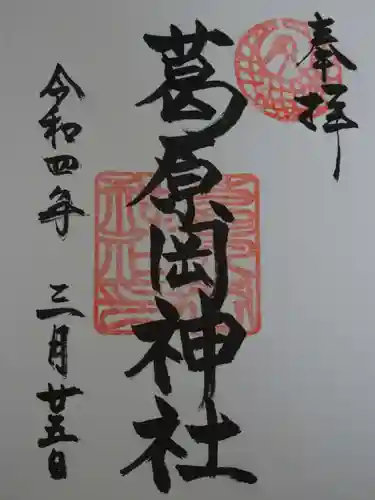 奉拝
葛原岡神社
令和四年 三月廿五日